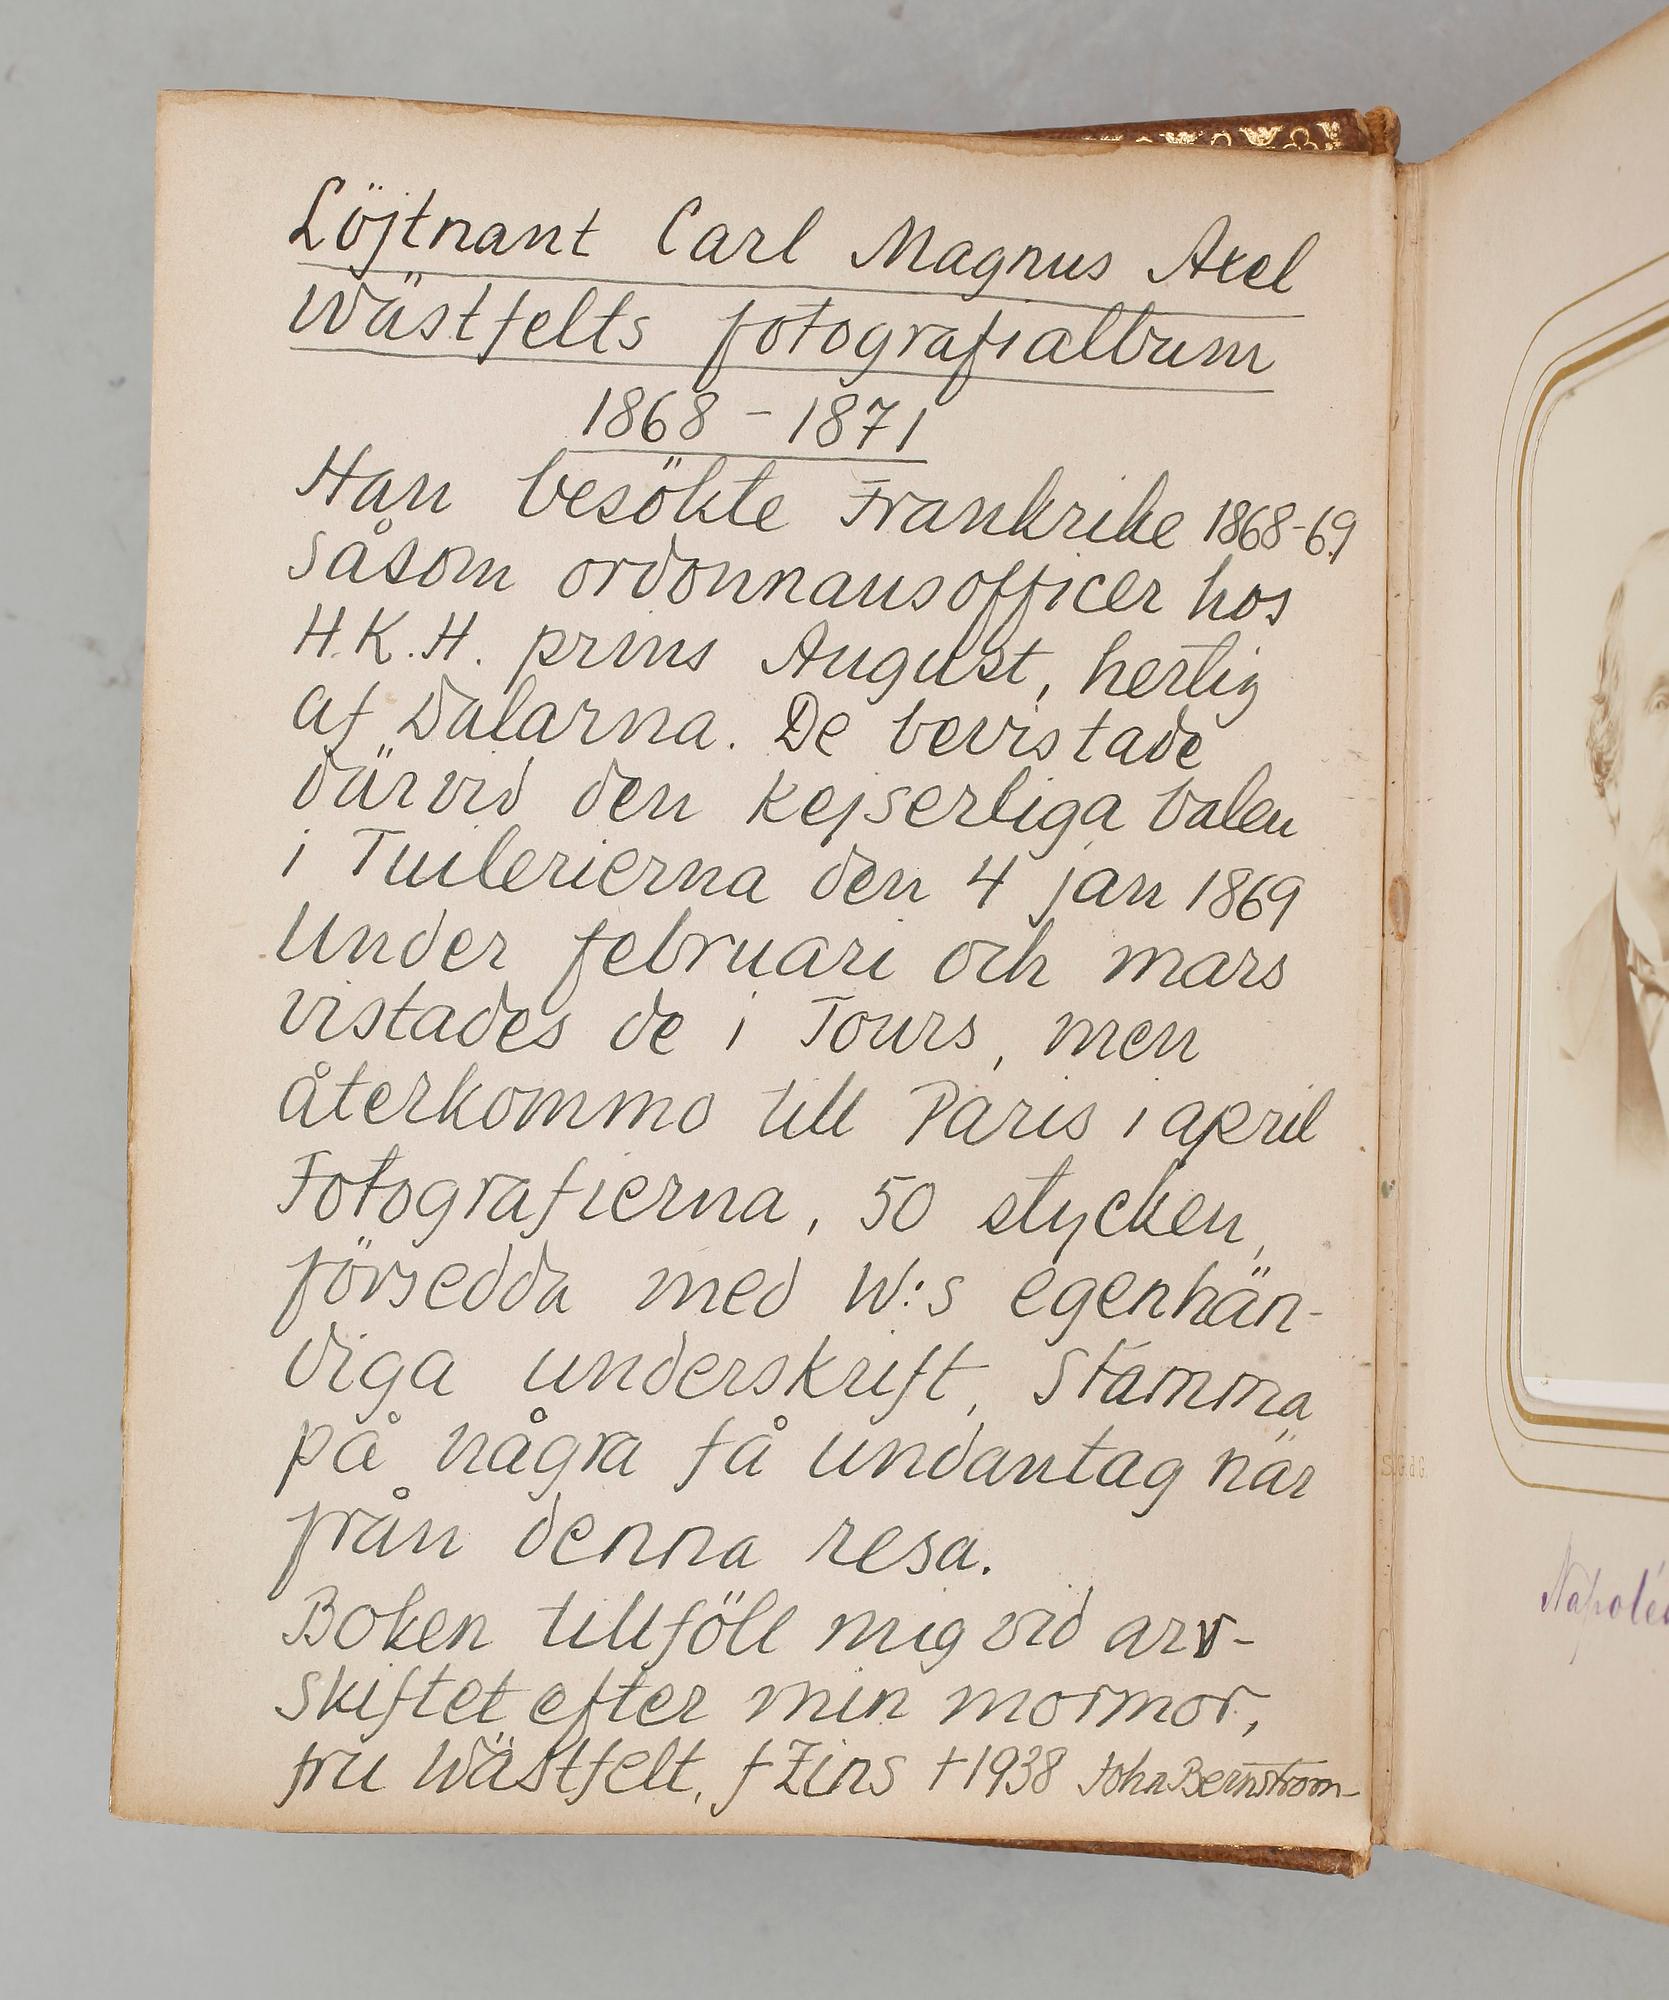 Löjtnant Carl Magnus Axel
Wästfelts fotografialbum
1868 - 1871
Han besökte Frankrike 1868-69
såsom ordonnansofficer hos
H.K.H. prins August, hertig
af Dalarna. De bevistade
därvid den kejserliga balen
i Tuilerierna den 4 jan 1869
Under februari och mars
vistades de i Tours, men
återkommo till Paris i april
Fotografierna, 50 stycken,
försedda med W:s egenhän-
diga underskrift, stamma
på några få undantag när
från denna resa.
Boken tillföll mig vid arv-
skiftet efter min mormor,
fru Wästfelt, f Zins †1938 John Bernström
S.G.d.G.
Napolé